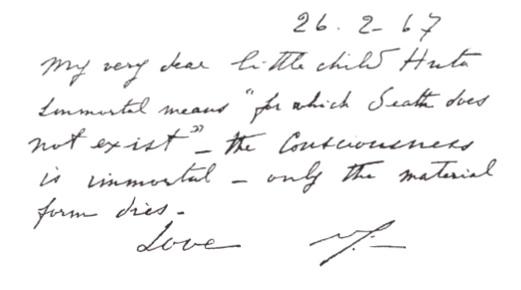 26. 2- 67
My very dear little child Huta
Immortal means "for which Death does
not exist" – the Consciousness
is immortal – only the material
form dies –
Love